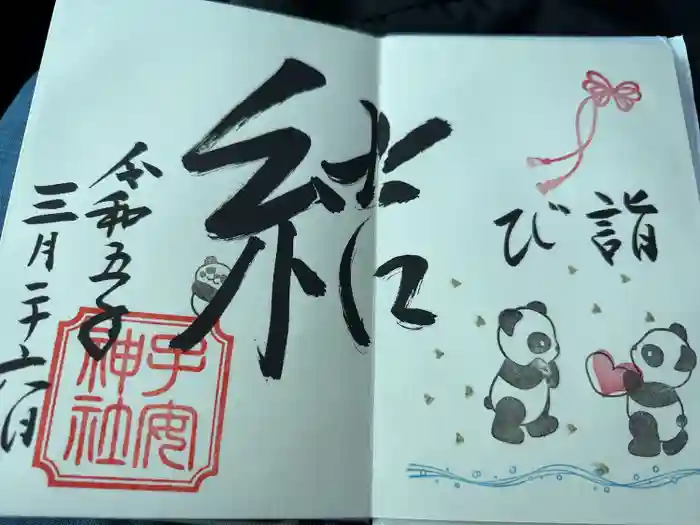 詣
び
結
令和五年
三月二十六日
子安
神社